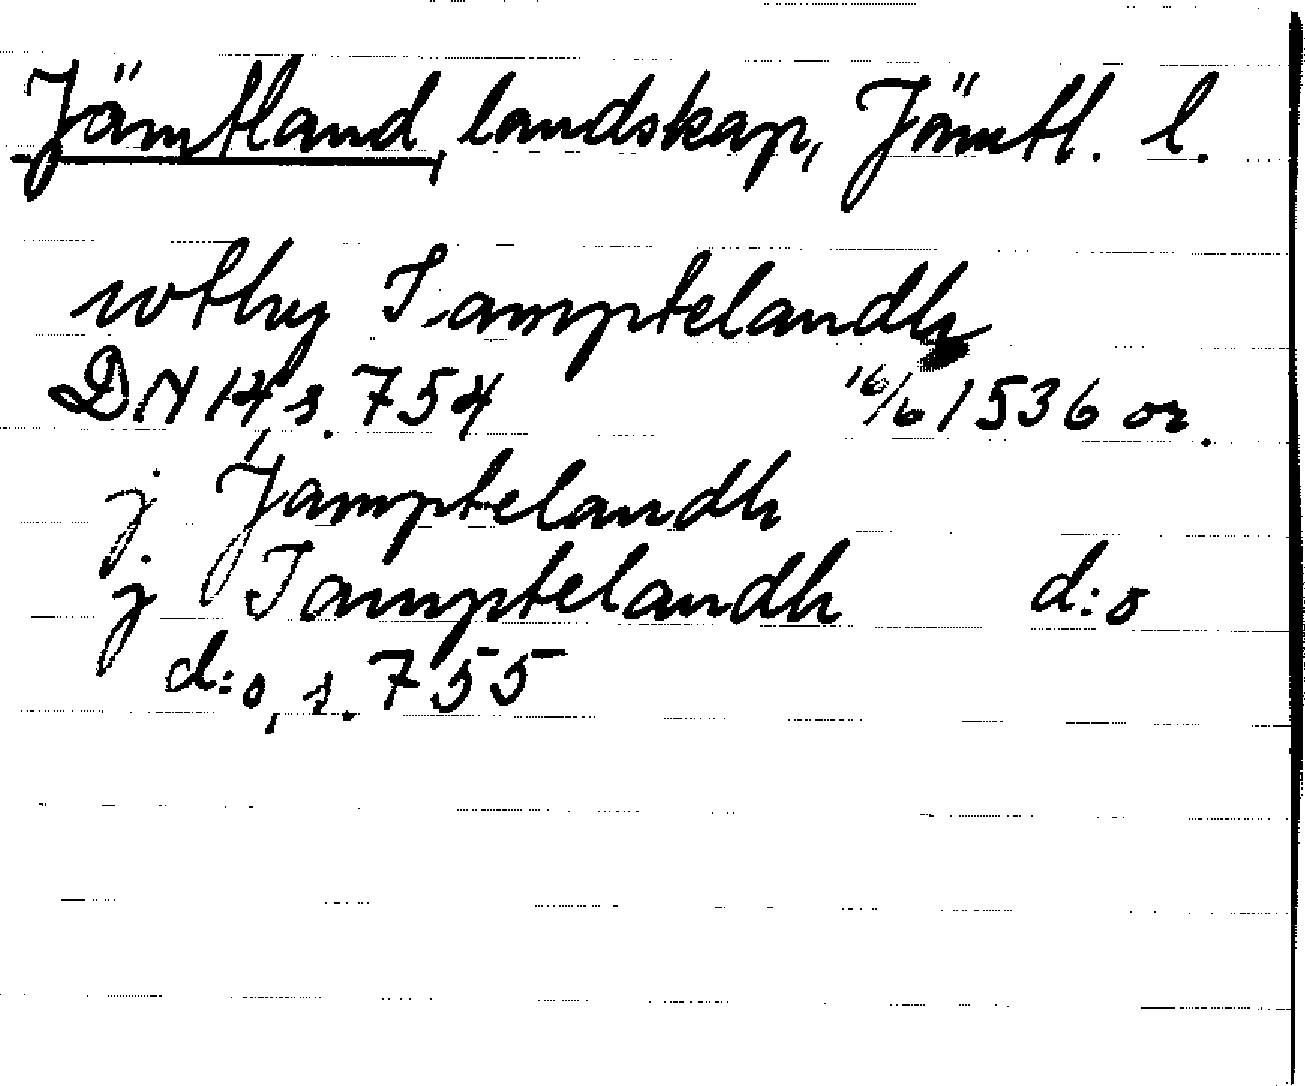 Jämtland, landskap, Jämtl. l.
wthy Iamptelandh
DN 14, s. 754 16/6 1536 or.
j Jamptelandh
j Iamptelandh d:o
d:o, s. 755